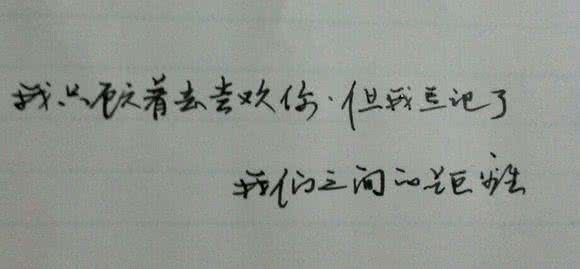 我只顾着去喜欢你.但我忘记了
我们之间的距离